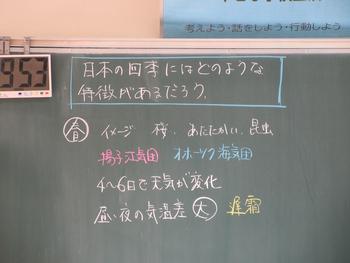 考えよう・話をしよう・行動しよう
953
日本の四季にはどのような
特徴があるだろう。
春 イメージ 桜、あたたかい、昆虫
揚子江気団 オホーツク海気団
4~6日で天気が変化
昼と夜の気温差 大 遅霜